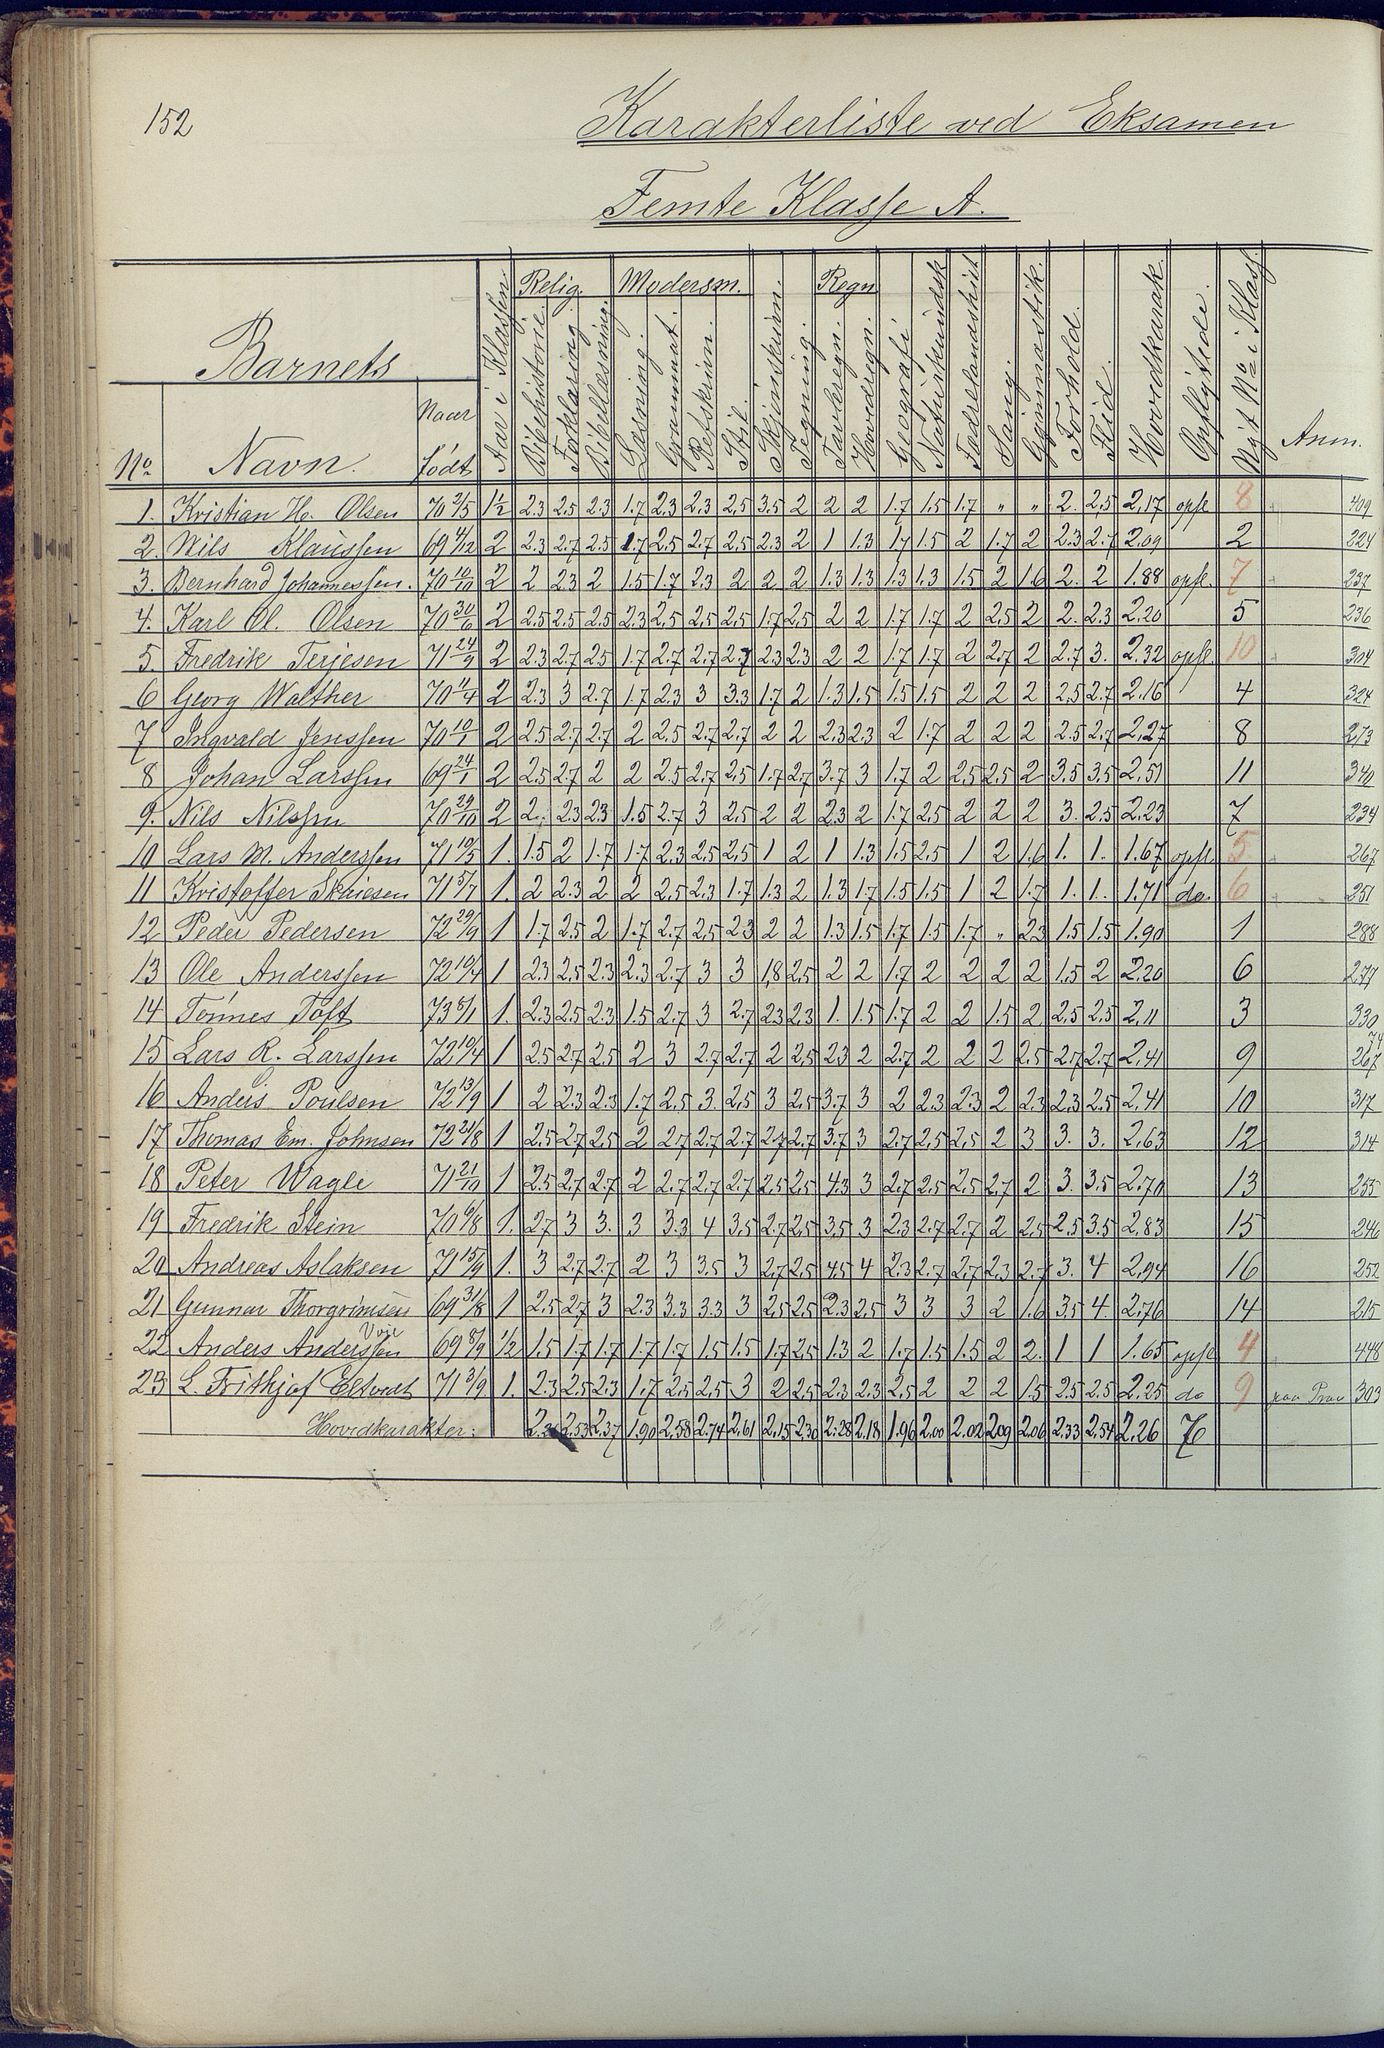 152
Karakterliste ved Eksamen
Femte Klasse A.
Barnets
No. Navn. Naar født Aar i Klassen. Relig. Bibelhistorie. Forklaring. Bibellæsning. Modersm. Læsning. Grammat. Retskrivn. Stil. Skjønskrivn. Tegning. Regn Tavleregn. Hovedregn. Geografi Naturkundsk Fædrelandshist Sang. Gymnastik. Forhold. Flid. Hovedkarak. Opflyttede. Nyt No. i Klass. Anm.
1. Kristian H. Olsen 70 2/5 1½ 2.3 2.5 2.3 1.7 2.3 2.3 2.5 3.5 2 2 2 1.7 1.5 1.7 " " 2. 2.5 2,17 opfl 8 409
2. Nils Klaussen 69 4/12 2 2.3 2.7 2.5 1.7 2.5 2.7 2.5 2.3 2 1 1.3 1.7 1.5 2 1.7 2 2.3 2.7 2.09 2 224
3. Bernhard Johannessen. 70 10/10 2 2 2.3 2 1.5 1.7 2.3 2 2 2 1.3 1.3 1.3 1.3 1.5 2 1.6 2. 2 1.88 opfl. 7 237
4. Karl Ol. Olsen 70 30/6 2 2.5 2.5 2.5 2.3 2.5 2.5 2.5 1.7 2.5 2 2 1.7 1.7 2 2.5 2 2. 2.3 2.20 5 236
5. Fredrik Terjesen 71 24/9 2 2.3 2.7 2.5 1.7 2.7 2.7 2.7 2.3 2.3 2 2 1.7 1.7 2 2.7 2 2.7 3. 2.32 opfl. 10 304
6 Georg Walther 70 11/4 2 2.3 3 2.7 1.7 2.3 3 3.3 1.7 2 1.3 1.5 1.5 1.5 2 2 2 2.5 2.7 2.16 4 324
7 Ingvald Jenssen 70 10/1 2 2.5 2.7 2.7 2 2.5 2.7 2.7 2 2 2.3 2.3 2 1.7 2 2 2 2.5 2.7 2,27 8 273
8 Johan Larssen 69 24/1 2 2.5 2.7 2 2 2.5 2.7 2.5 1.7 2.7 3.7 3 1.7 2 2.5 2.5 2 3.5 3.5 2.51 11 340
9. Nils Nilssen 70 29/10 2 2. 2.3 2.3 1.5 2.7 3 2.5 2 2 2.3 2 1.7 2.5 2 2 2 3. 2.5 2.23 7 234
10 Lars M. Anderssen 71 10/5 1. 1.5 2 1.7 1.7 2.3 2.5 2.5 1 2 1 1.3 1.5 2.5 1 2 1.6 1. 1. 1.67 opfl. 5. 267
11 Kristoffer Skaiesen 71 5/7 1. 2 2.3 2 2 2.5 2.3 1.7 1.3 2 1.3 1.7 1.5 1.5 1 2 1.7 1. 1. 1.71 do. 6 251
12 Peder Pedersen 72 29/9 1 1.7 2.5 2 1.7 2.7 2.5 2.3 2 2 1.3 1.5 1.7 1.5 1.7 " 2.3 1.5 1.5 1.90 1 288
13 Ole Anderssen 72 10/4 1 2.3 2.5 2.3 2.3 2.7 3 3 1,8 2.5 2 2 1.7 2 2 2 2 1.5 2 2.20 6 277
14 Tønnes Toft 73 8/1 1. 2.3 2.5 2.3 1.5 2.7 3 2.7 2.3 2.3 1. 1.5 1.7 2 2 1.5 2. 2.5 2.5 2,11 3 330
15 Lars R. Larssen 72 10/4 1 2.5 2.7 2.5 2 3 2.7 2.7 2 2.5 2.3 2 2.7 2 2 2 2.5 2.7 2.7 2.41 9 267
16 Anders Poulsen 72 13/9 1 2 2.3 2.3 1.7 2.5 3. 2.5 3 2.5 3.7 3 2 2.3 2.3 2 2.3 2.3 2.5 2.41 10 317
17 Thomas Em. Johnsen 72 21/8 1 2.5 2.7 2.5 2 2.7 2.7 2.7 2.7 2.7 3.7 3 2.7 2.5 2.5 2 3 3. 3. 2.63 12 314
18 Peter Wagle 71 21/10 1. 2.5 2.7 2.7 2 2.7 2.7 2.7 2.5 2.5 4.3 3 2.7 2.5 2.5 2.7 2 3. 3.5 2.70 13 255
19 Fredrik Stein 70 6/8 1. 2.7 3 3. 3 3.3 4 3.5 2.7 2.5 3.5 3 2.3 2.7 2.7 2 2.5 2.5 3.5 2.83 15 246
20 Andreas Aslaksen 71 15/9 1. 3 2.7 2.7 2 3 3.5 3 2.7 2.5 4.5 4 2.3 2.7 2.7 2.3 2.7 3. 4 2.94 16 252
21 Gunnar Thorgrimsen 69 31/8 1 2.5 2.7 3 2.3 3.3 3.3 3 2.5 2.5 2.3 2.5 3 3 3 2 1.6 3.5 4. 2.76 14 215
22 Anders Anderssen Voie 69 8/9 ½ 1.5 1.7 1.7 1.7 1.7 1.5 1.5 1.7 2.5 1.3 2 1.7 1.5 1.5 2 2. 1 1 1.65 opfl 4 448
23 L. Frithjof Eltvedt 71 3/9 1. 2.3 2.5 2.3 1.7 2.5 2.5 3 2 2.5 2.3 2.3 2.5 2 2 2 1.5 2.5 2.5 2.25 do 9 paa Prøve 303
Hovedkarakter: 2.26 2.53 2.37 1.90 2.58 2.74 2.61 2.15 2.30 2.28 2.18 1.96 2.00 2.02 2.09 2.06 2.33 2.54 2.26 7